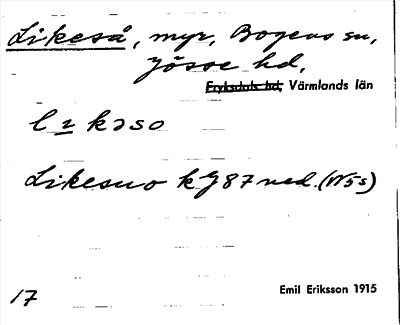 Likeså, myr, Bogens sn,
Jösse hd,
Fryksdals hd, Värmlands län
Likesuo kg 87 ned. (N5s)
17
Emil Eriksson 1915